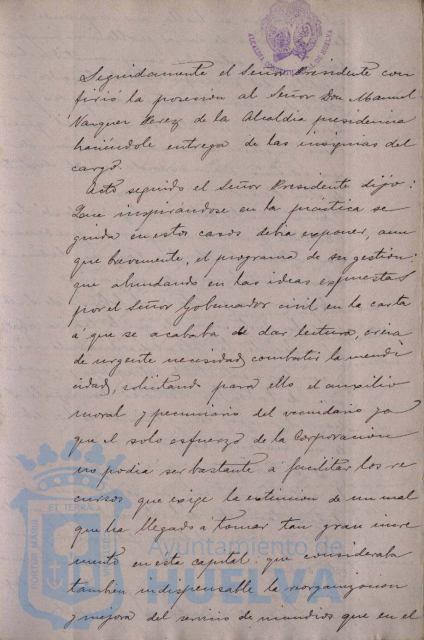 ALCALDIA CONSTITUCIONAL DE HUELVA
Seguidamente el Señor Presidente con
firió la posesion al Señor Don Manuel
Vazquez Perez de la Alcaldia presidencia
haciéndole entrega de las insignias del
cargo.
Acto seguido el Señor Presidente dijo:
Que inspirándose en la práctica se
guida en estos casos debia exponer, aun
que brevemente, el programa de su gestión:
que abundando en las ideas expuestas
por el Señor Gobernador civil en la carta
á que se acababa de dar lectura, creia
de urgente necesidad combatir la mendi
cidad, solicitando para ello el auxilio
moral y pecuniario del vecindario ya
que el solo esfuerzo de la Corporacion
no podia ser bastante á facilitar los re
cursos que exige la extincion de un mal
que ha llegado á tomar tan gran incre
mento en esta capital: que consideraba
tambien indispensable la reorganizacion
y mejora del servicio de incendios que en el
PORTUS MARIS ET TERRAE
Ayuntamiento de
HUELVA